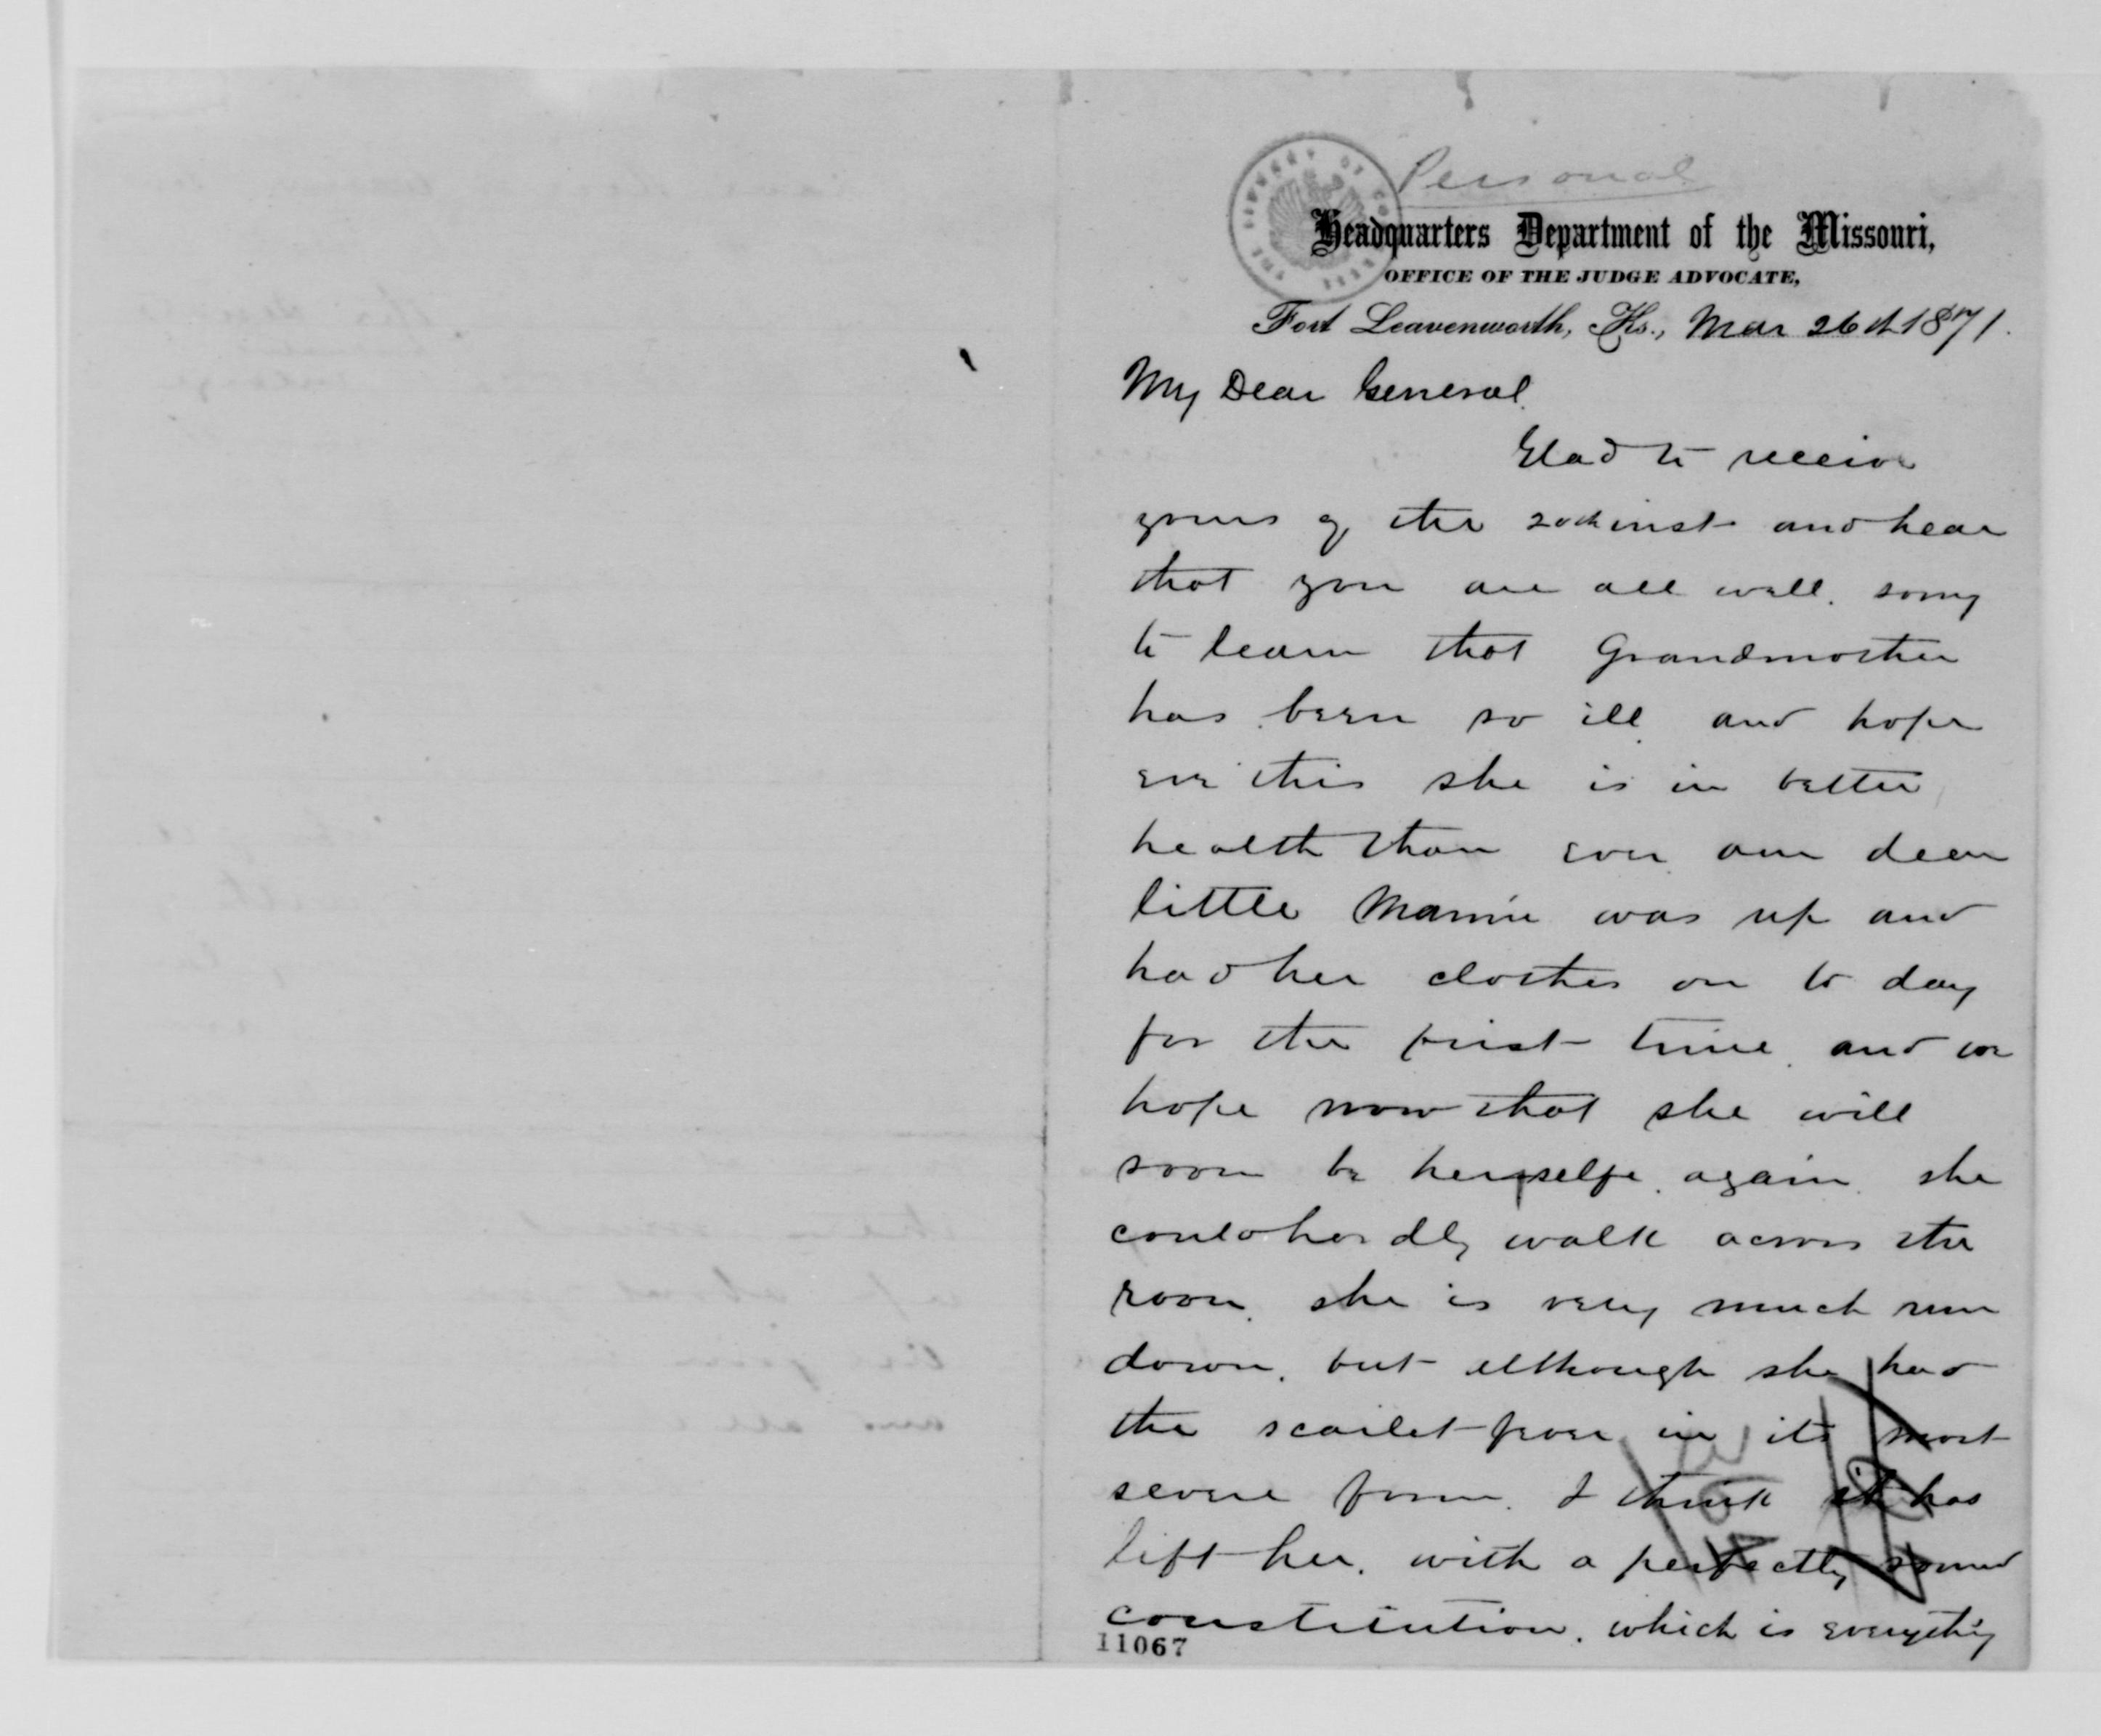 Personal
THE LIBRARY OF CONGRESS
Headquarters Department of the Missouri,
OFFICE OF THE JUDGE ADVOCATE,
Fort Leavenworth, Ks., Mar 26th 1871.
My Dear General.
Glad to receive
yours of the 20th inst and hear
that you are all well. sorry
to learn that Grandmother
has been so ill. and hope
ere this she is in better
health than ever. our dear
little Mamie was up and
had her clothes on to day
for the first time. and we
hope now that she will
soon be herself. again. she
could hardly walk across the
room. she is very much run
down. but although she had
the scarlet fever in its most
severe form. I think it has
left her. with a perfectly sound
constitution. which is everything
11067